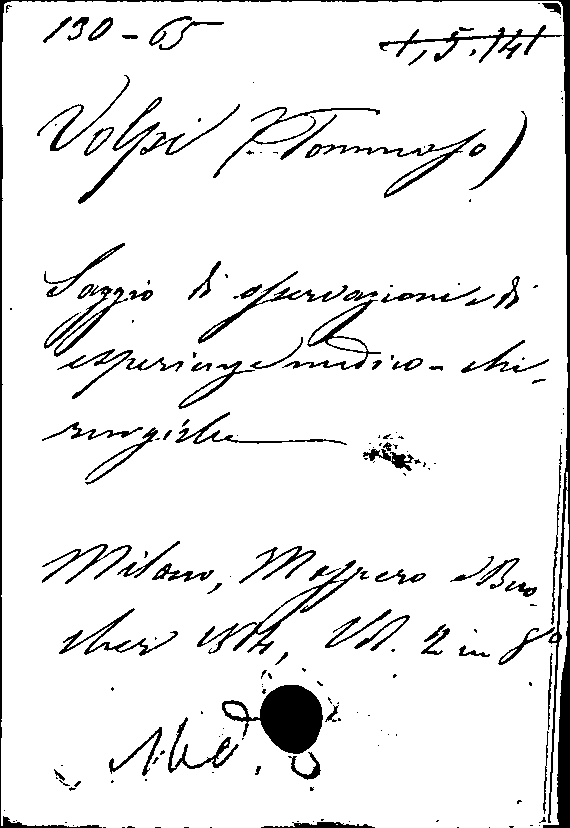 130-65
1,5.141
Volpi (Tommaso)
Saggio di osservazioni e di
esperienze medico-chi-
rurgiche
Milano, Maspero e Buo-
cher 1814, Vol. 2 in 8°
Med.